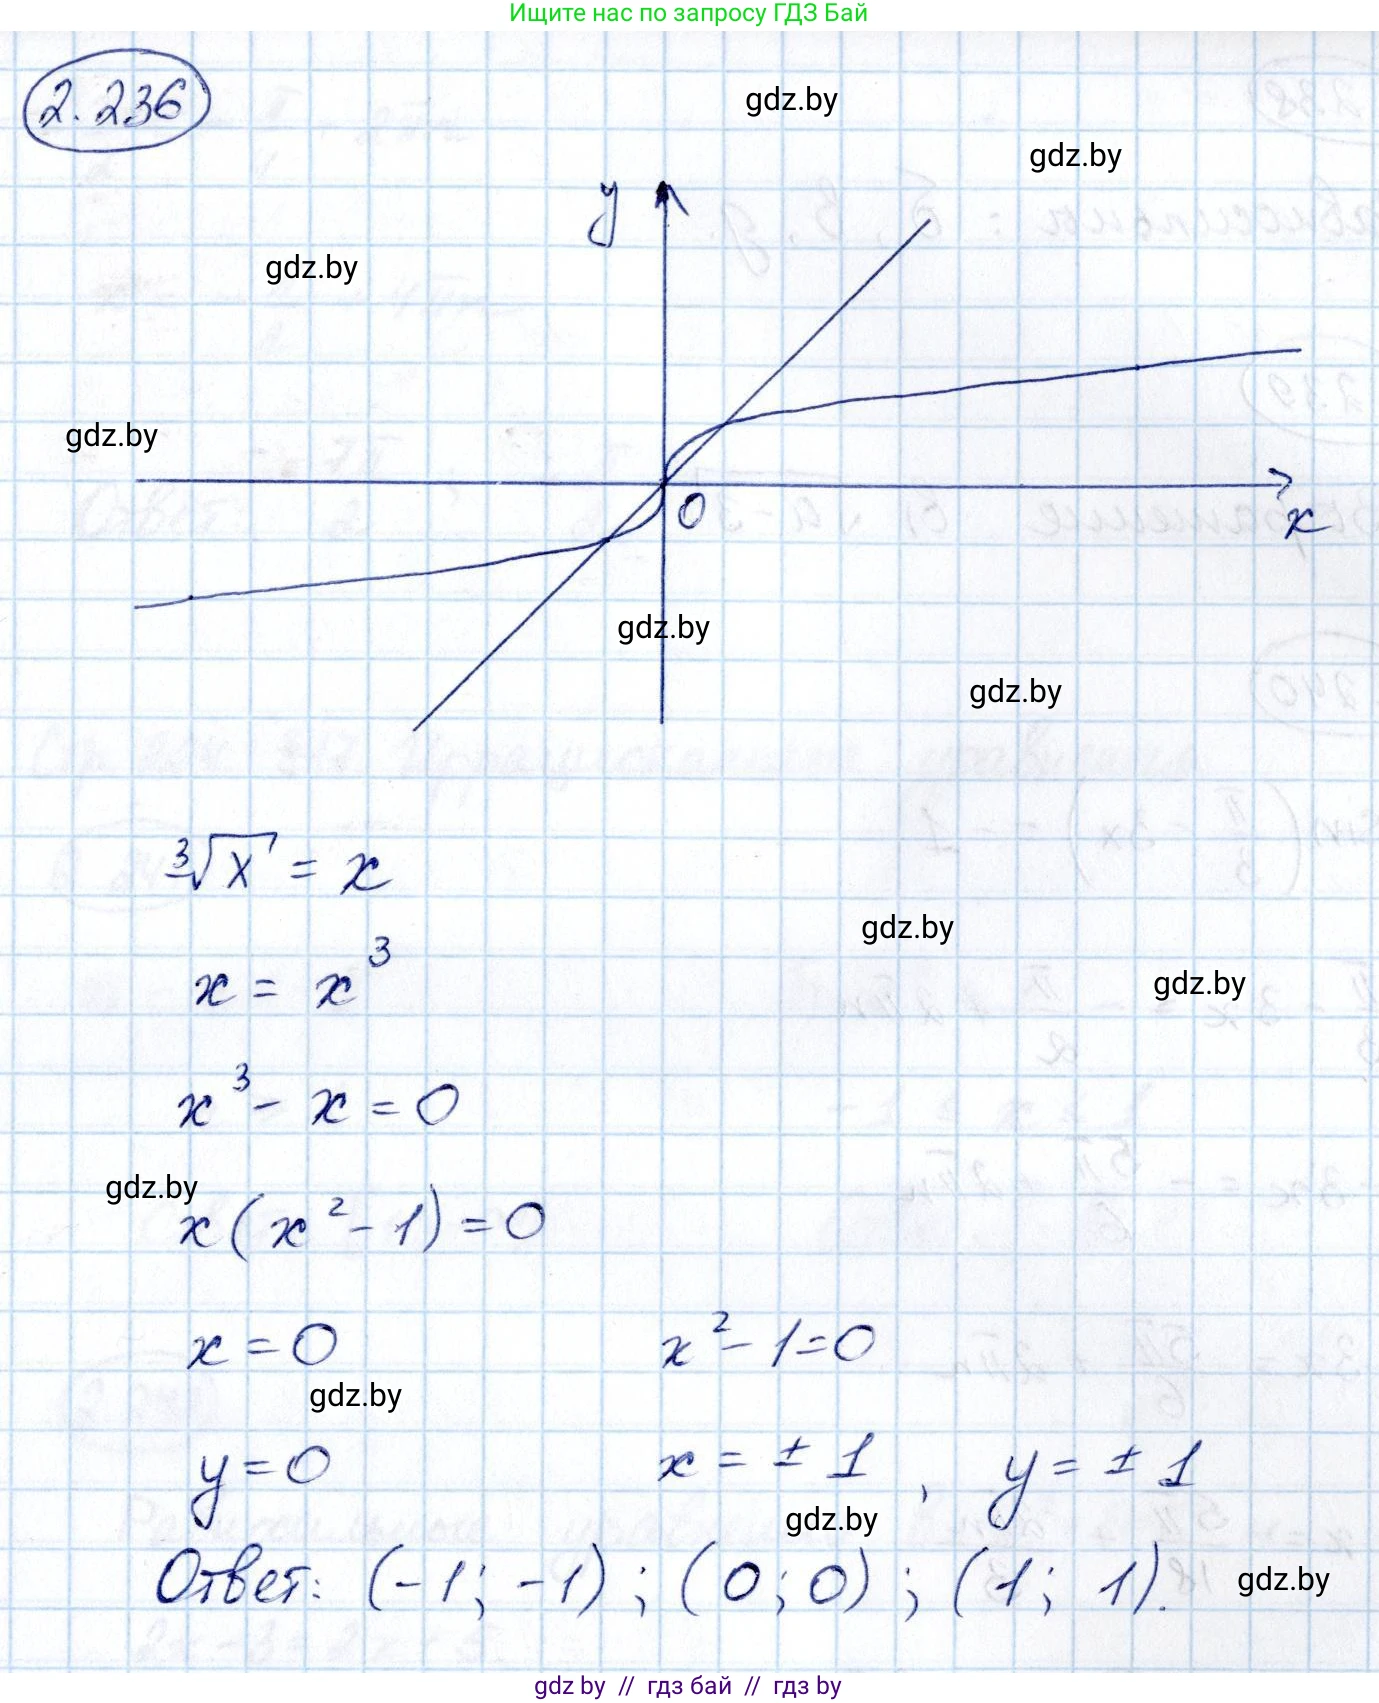 Ищите нас по запросу ГДЗ Бай
2.236
gdz.by
gdz.by
y
gdz.by
gdz.by
0
x
gdz.by
gdz.by
∛x = x
gdz.by
x = x³
gdz.by
x³ - x = 0
gdz.by
x(x² - 1) = 0
x = 0 x² - 1 = 0
gdz.by
y = 0 x = ± 1, y = ± 1
gdz.by
Ответ: (-1; -1); (0; 0); (1; 1).
gdz.by
gdz by // гдз бай // гдз by